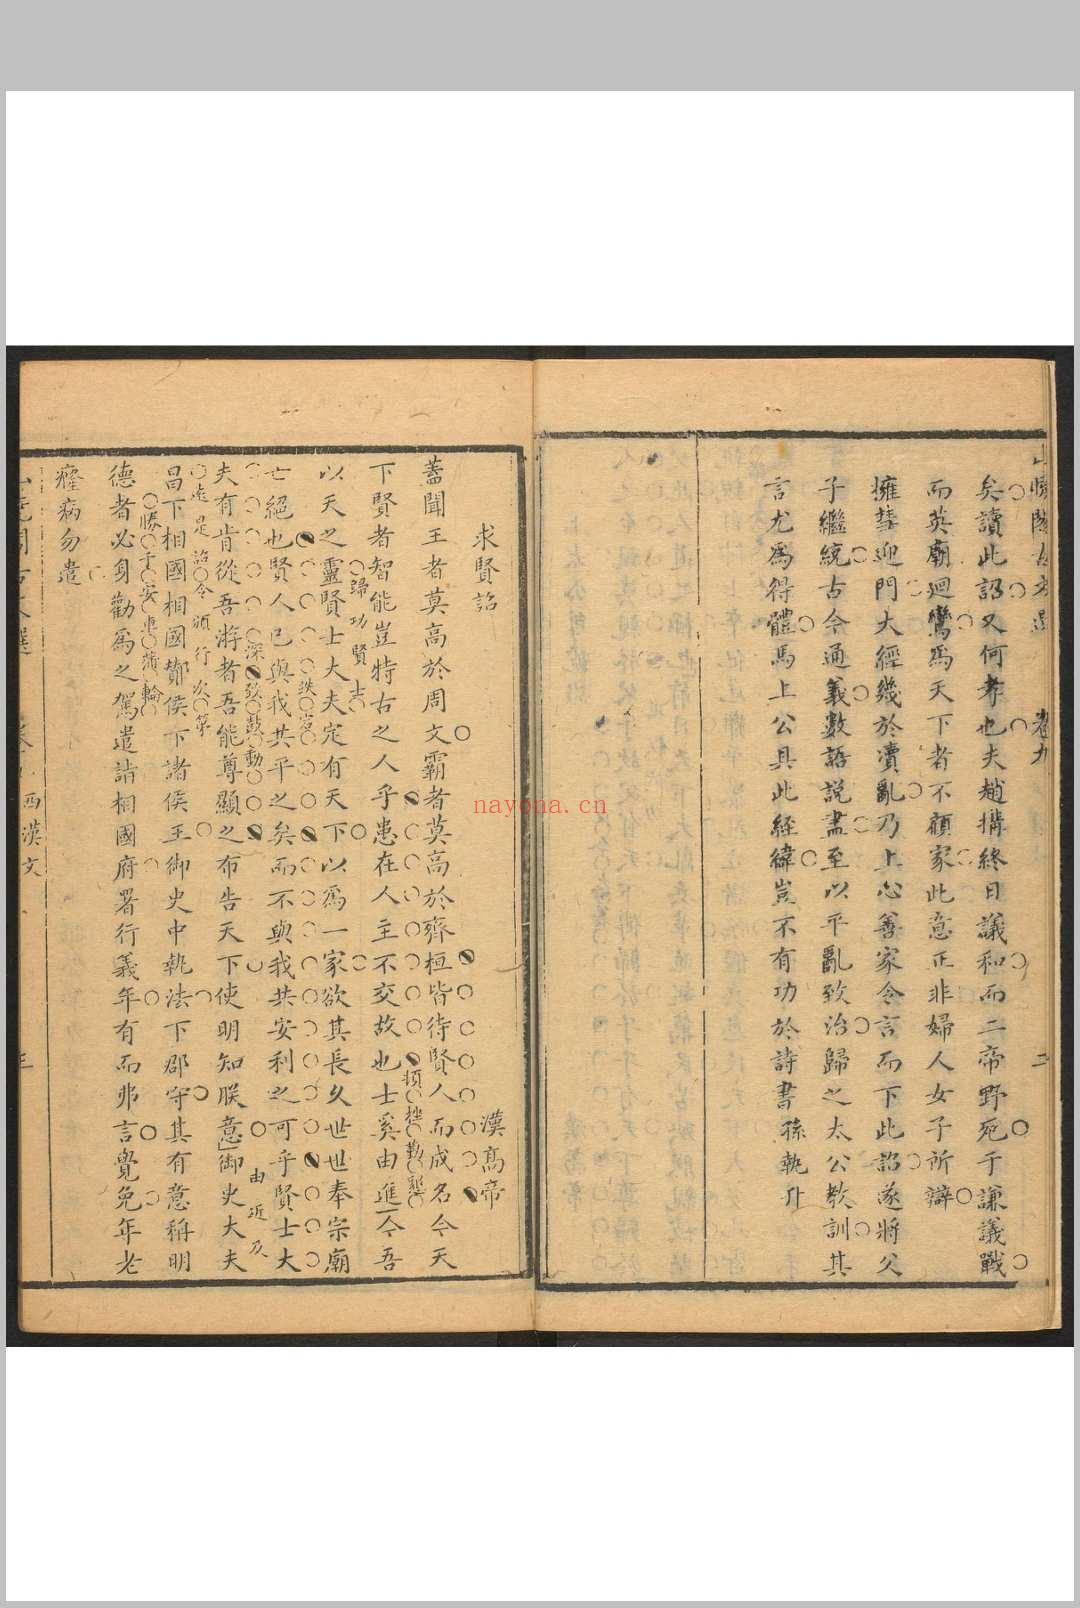 卷九
矣讀此詔又何孝也夫趙搆終日議和而二帝野死于謙議戰
而英廟迴鸞爲天下者不顧家此意正非婦人女子所辯
擁彗迎門大經幾於瀆亂乃上心善家令言而下此詔遂將父
子繼統古今通義數語説盡至以平亂致治歸之太公教訓其
言尤爲得體馬上公具此經緯豈不有功於詩書孫執升
求賢詔
漢髙帝
蓋聞王者莫高於周文霸者莫高於齊桓皆待賢人而成名今天
頓挫
下賢者智能豈特古之人乎患在人主不交故也士奚由進今吾
歸功賢士
以天之靈賢士大夫定有天下以爲一家欲其長久世世奉宗廟
亡絕也賢人已與我共平之矣而不與我共安利之可乎賢士大
深
鼓動
夫有肯從吾游者吾能尊顯之布告天下使明知朕意御史大夫
由近及
遠是詔令頒行次第
昌下相國相國酇侯下諸侯王御史中執法下郡守其有意稱明
勝于安車蒲輪
德者必身勸爲之駕遣詣相國府署行義年有而弗言覺免年老
癃病勿遣
西漢文
nayona.cn